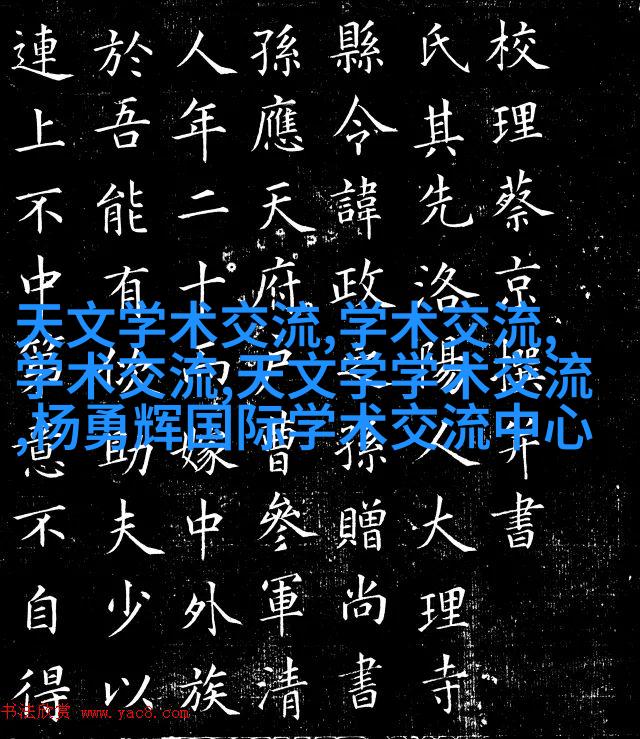 天文学术交流,学术交流,
学术交流,天文学学术交流
,杨勇辉国际学术交流中心
校理蔡京撰并書
氏其先洛陽人大理寺
縣令諱政孫贈尚書
孫應天府曹參軍清
人年二十而嫁中外族
於吾能有助夫少以
連上不中第意不自得
书法欣赏 www.yac8.com